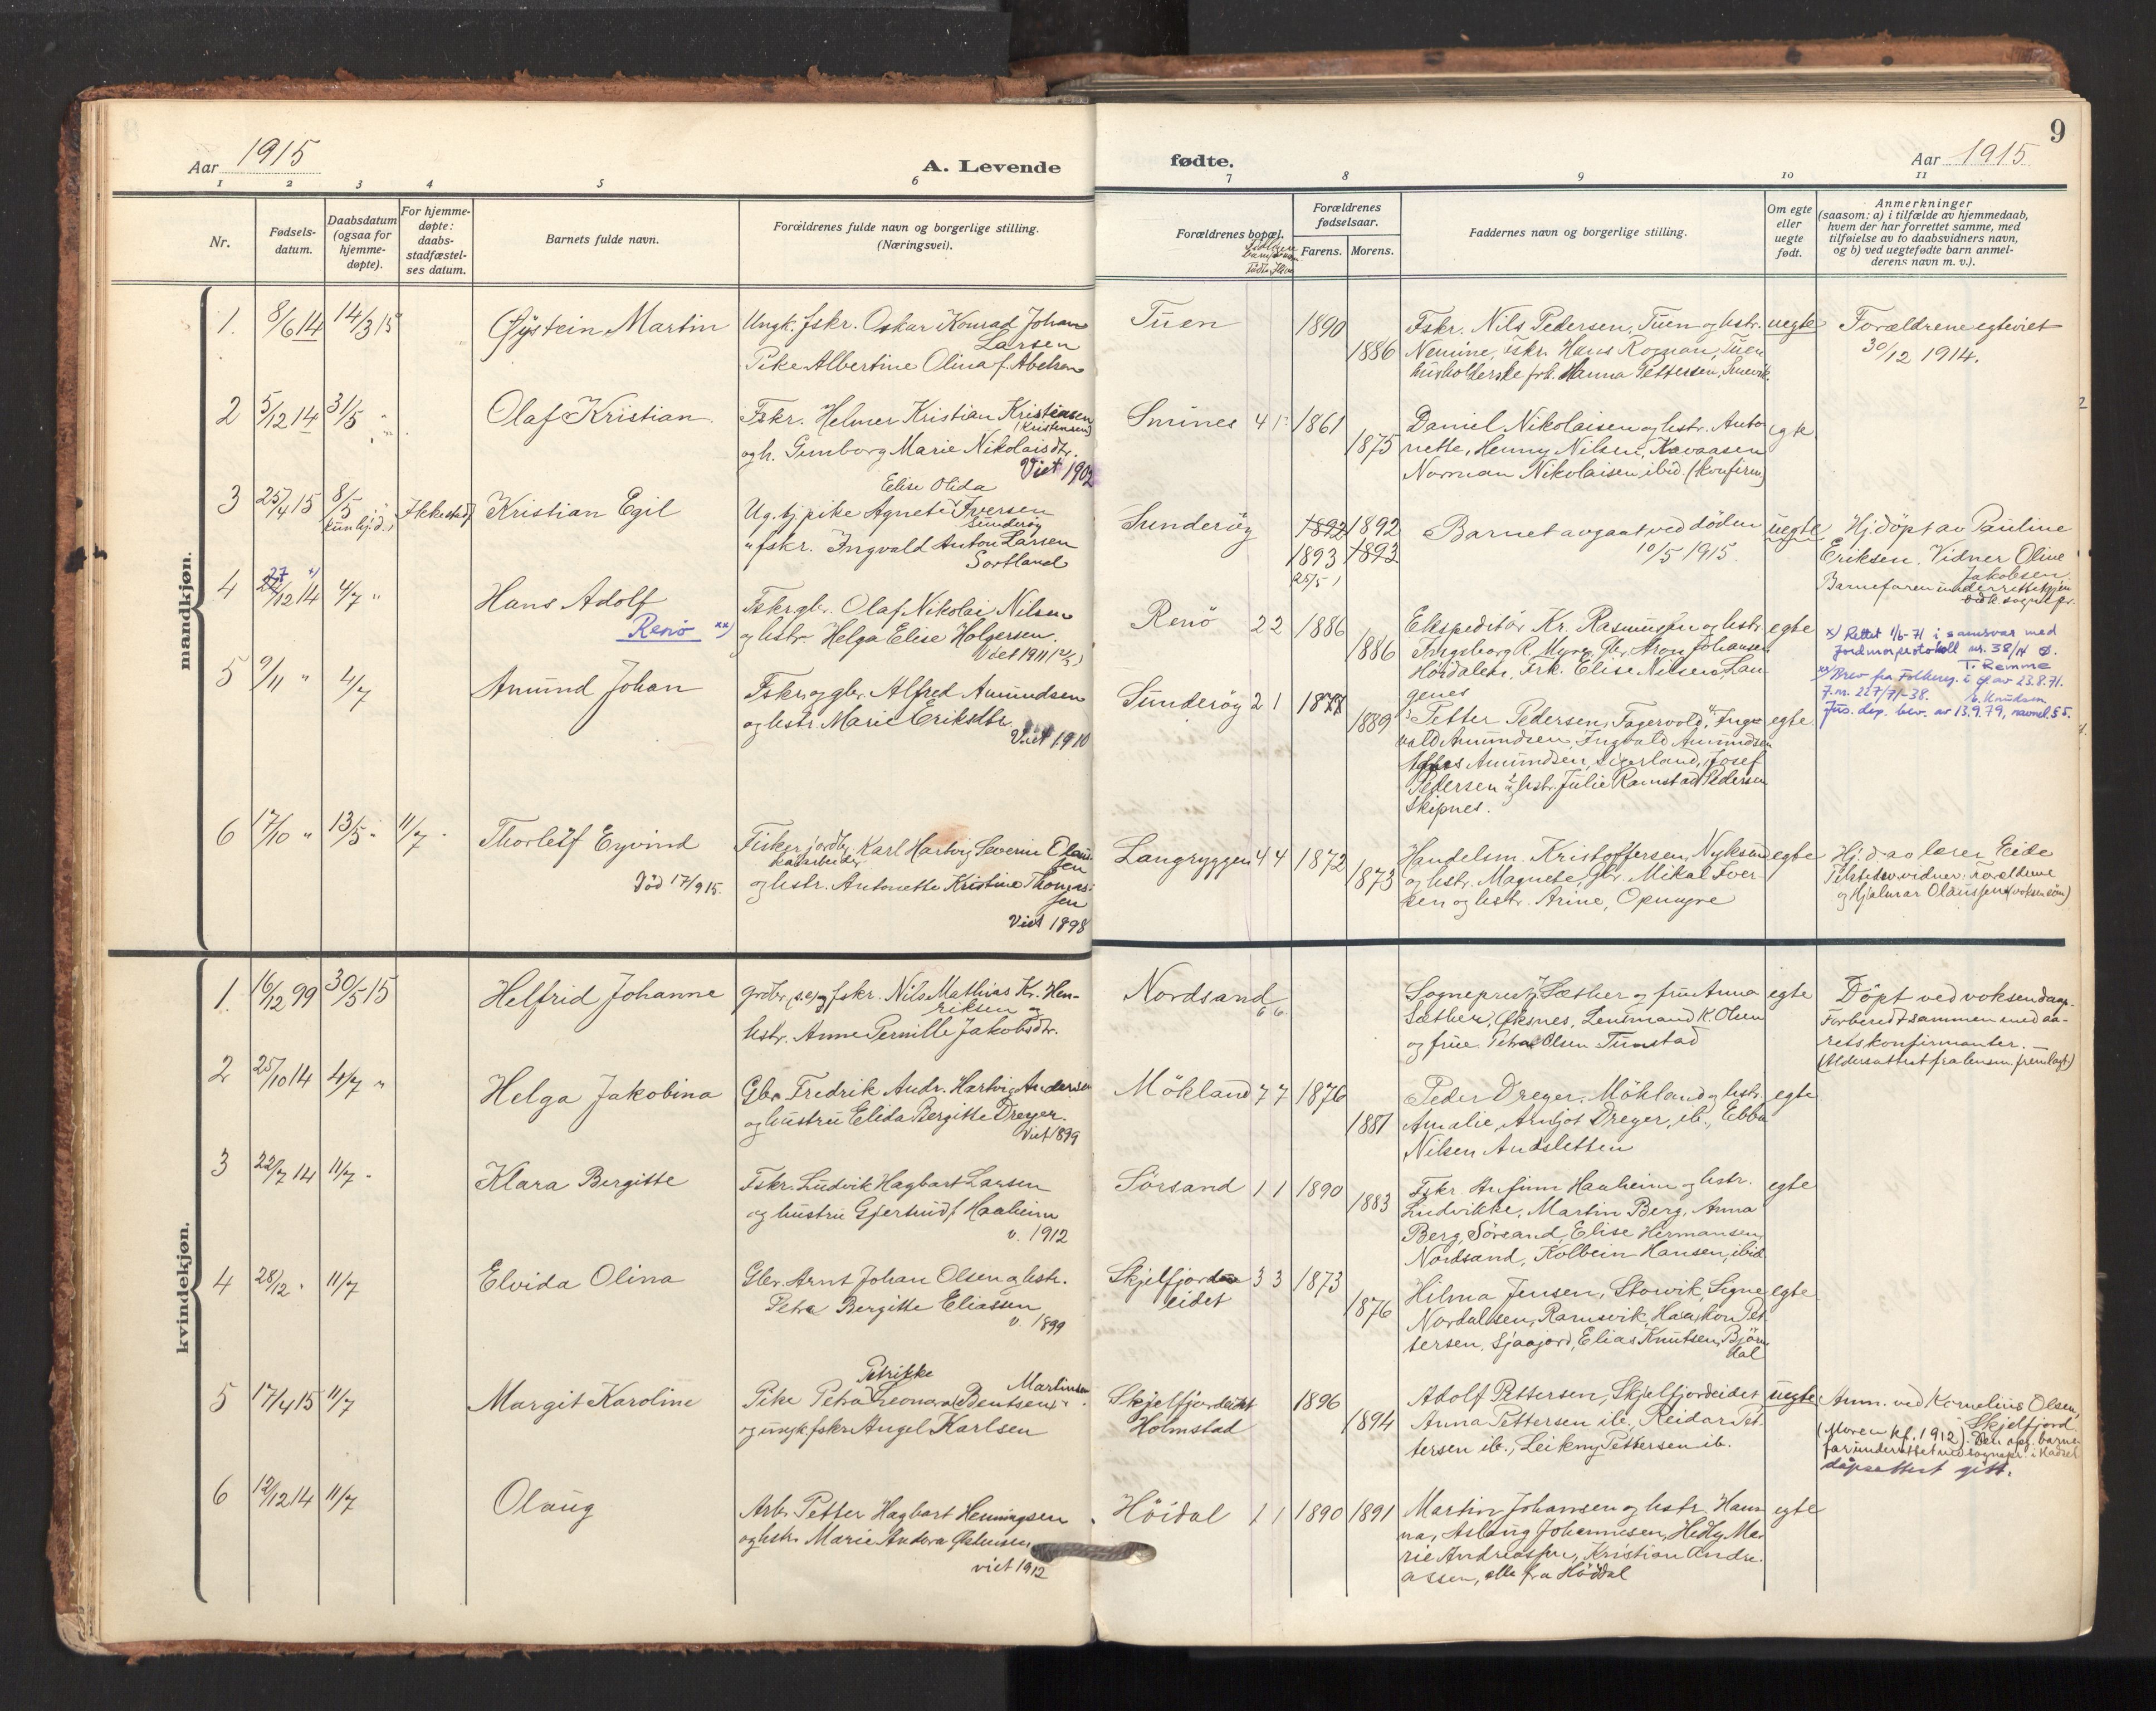 9
Aar 1915
A. Levende
fødte.
Aar 1915
1 2 3 4 5 6 7 8 9 10 11
Nr.
Fødsels-
datum.
Daabsdatum
(ogsaa for
hjemme-
døpte).
For hjemme-
døpte:
daabs-
stadfæstel-
ses datum.
Barnets fulde navn.
Forældrenes fulde navn og borgerlige stilling.
(Næringsvei).
Forældrenes bopæl.
Forældrenes
fødselsaar.
Farens. Morens.
Faddernes navn og borgerlige stilling.
Om egte
eller
uegte
født.
Anmerkninger
(saasom: a) i tilfælde av hjemmedaab,
hvem der har forrettet samme, med
tilføielse av to daabsvidners navn,
og b) ved uegtefødte barn anmel-
derens navn m. v.).
mandkjøn.
1. 8/6 14 14/3 15 Øystein Martin
Ungk. fskr. Oskar Konrad Johan
Larsen
Pike Albertine Olina f. Abelsen
Tuen 1890 1886
Fskr. Nils Pedersen, Tuen og hstr.
Nemine, Fskr. Hans Rognan, Tuen
husholderske frk. Hanna Pettersen,
uegte
Forældrene egteviet
30/12 1914.
2 5/12 14 31/5 " Olaf Kristian
Fskr. Helmer Kristian Kristiansen
(Kristensen)
og h. Gunborg Marie Nikolaisdtr.
Viet 1902
Smines 4 1 1861 1875
Daniel Nikolaisen og hstr. Anto
nette, Henny Nilsen, Kavaasen
Norman Nikolaisen, ibid. (konfirm)
egte
3 25/4 15 8/5 Kristian Egil
Elise Olida
Ug. tj. pike Agnete Iversen
Sunderøy
" fskr. Ingvald Anton Larsen
Sortland
Sunderöy 1892 1892
1893 1893
25/5
Barnet avgaat ved döden
10/5 1915.
uegte
Hj. döpt av Pauline
Eriksen. Vidner Oline
Jakobsen.
Barnefaren underrettet gjen
vedk. sognepr.
4 27 x) 22/12 14 4/7 " Hans Adolf
Renö xx)
Fskr gbr. Olaf Nikolai Nilsen
og hstr. Helga Elise Holgersen.
Viet 1911
Renö 2 2 1886 1886
Ekspeditör Kr. Rasmussen og hstr.
Ingeborg R. Myre, Gbr. Aron Johansen
Höidalen, Frk. Elise Nilsen Lan
genes
egte
x) Rettet 1/6-71 i samsvar med
jordmorprotokoll nr. 38/14 Ø.
T. Remme
xx) Brev fra Folkereg. i Ø av 23.8.71.
J.nr. 227/71-38. E. Knudsen
Jus. dep. bev. av 13.9.79, navnel. § 5.
5 9/11 " 4/7 Amund Johan
Fskr. og gbr. Alfred Amundsen
og hstr. Marie Eriksdtr.
Viet 1910
Sunderöy 2 1 1877 1889
Petter Pedersen, Fagervold, Ing
vald Amundsen, Ingvald Amundsen
Agnes Amundsen, Sigerland, Josef
Pedersen og hstr. Julie Ramstad Pedersen
Skipnes.
egte
6 17/10 " 13/5 " 11/7 " Thorleif Eyvind
Död 17/9 15.
Fisker, jordbr. Karl Hartvig Severin Olaus-
sen
og hstr. Antonette Kristine Thomas-
sen
Viet 1898
Langryggen 4 4 1872 1873
Handelsm. Kristoffersen, Nyksund
og hstr. Magnete, Gbr. Mikal Iver-
sen og hstr. Arine, Opmyre
egte
Hj. d. av lærer Eide
Tilstede vidner: Forældrene
og Hjalmar Olaussen (voksen sön)
kvindekjøn.
1. 16/12 99 30/5 15 Helfrid Johanne
Grdbr. (s.e) og fskr. Nils Mathias Kr. Hen-
riksen og
hstr. Anne Pernille Jakobsdtr.
Nordsand 6 6
Sogneprest J. Sæther og frue Anna
Sæther, Øksnes, Lensmand K. Olsen
og frue Petra Olsen Tunstad
egte
Döpt ved voksendaap.
Forberedt sammen med aa-
rets konfirmanter. —
(Aldersattest fra lensm. fremlagt)
2 25/10 14 4/7 " Helga Jakobina
Gbr. Fredrik Andr. Hartvig Andersen
og hustru Elida Bergitte Dreyer.
Viet 1899
Mökland 7 7 1876 1881
Peder Dreyer, Mökland og hstr.
Amalie, Arnljot Dreyer, ib., Ebba
Nilsen Andsletten
egte
3 22/7 14 11/7 - Klara Bergitte
Fskr. Ludvik Hagbart Larsen
og hustru Gjertrud f. Haaheim
v. 1912
Sörsand 1 1 1890 1883
Fskr. Anfinn Haaheim og hstr.
Ludvikke, Martin Berg, Anna
Berg, Sörsand, Elise Hermansen,
Nordsand, Kolbein Hansen, ibid
egte
4 28/12 " 11/7 Elvida Olina
Gbr. Arnt Johan Olsen og hstr.
Petra Bergitte Eliassen
v. 1899
Skjelfjord
eidet 3 3 1873 1876
Hilma Jensen, Storvik, Signe
Nordahlsen, Ramsvik, Haakon Pet
tersen, Sjaagord, Elias Knutsen, Björn
dal
egte
5 17/4 15 11/7 Margit Karoline
Petrikke Martinsen
Pike Petra Leonora Bentsen
og ungk. fskr. Angel Karlsen
Skjelfjordeidet
Holmstad 1896 1894
Adolf Pettersen, Skjelfjordeidet
Anna Pettersen ib., Reidar Pet
tersen ib., Leikny Pettersen ib.
uegte
Anm. ved Kornelius Olsen,
Skjelfjord
(Moren kf. 1912). Den opg. barne
far underrettet ved sognepr. i Hadsel
dåpsattest gitt.
6 12/12 14 11/7 Olaug
Arb. Petter Hagbart Henningsen
og hstr. Marie Andora Østensen
viet 1912
Höidal 1 1 1890 1891
Martin Johansen og hstr. Han
na, Aslaug Johannesen, Hedly Ma
rie Andreassen, Kristian Andre-
assen, alle fra Höidal
egte